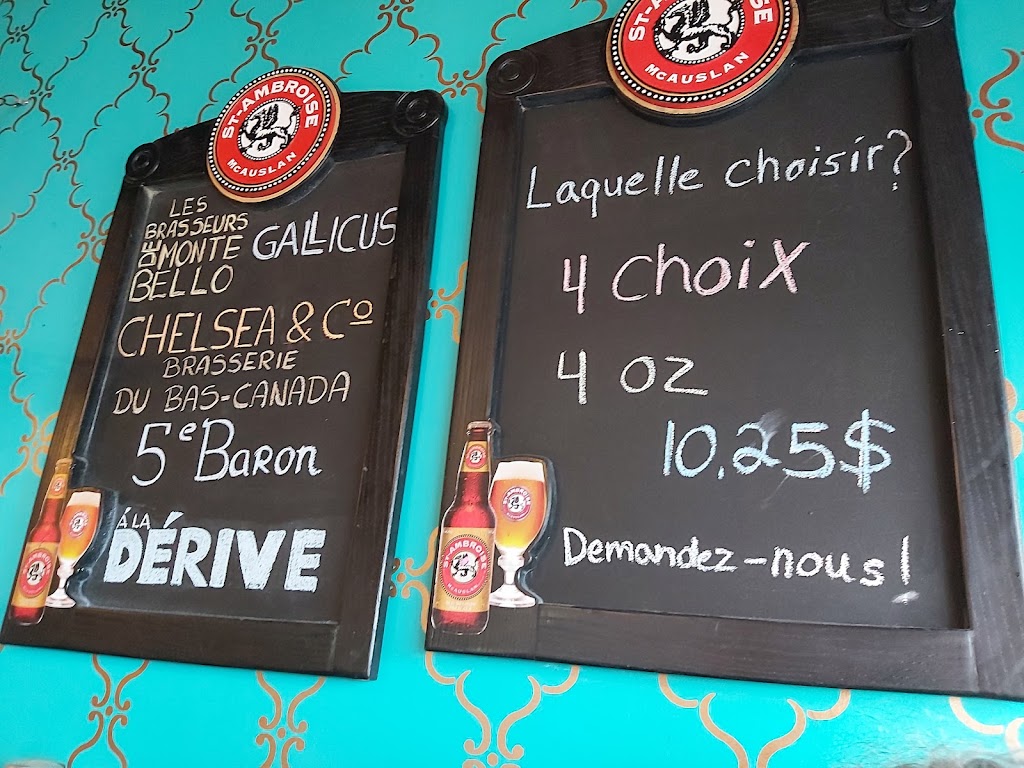 ST-AMBROISE
McAUSLAN
LES
BRASSEURS
DE MONTE
BELLO
GALLICUS
CHELSEA & Cº
BRASSERIE
DU BAS-CANADA
5e BARON
À LA
DÉRIVE
ST-AMBROISE
ST-AMBROISE
McAUSLAN
Laquelle choisir?
4 choix
4 oz
10,25$
Demandez-nous!
ST-AMBROISE
McAUSLAN